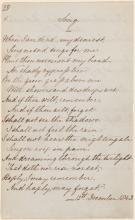 Song
When I am dead, my dearest,
Sing no sad songs for me
Plant thou no roses at my head,
Nor shady cypress tree
Be the green grass above me
With showers and dewdrops wet
And if thou wilt, remember
And if thou wilt, forget.
I shall not see the shadows
I shall not feel the rain
I shall not hear the nightingale
Sing on as if in pain
And dreaming through the twilight
That doth not rise nor set,
Haply I may remember
And haply may forget.
12th December